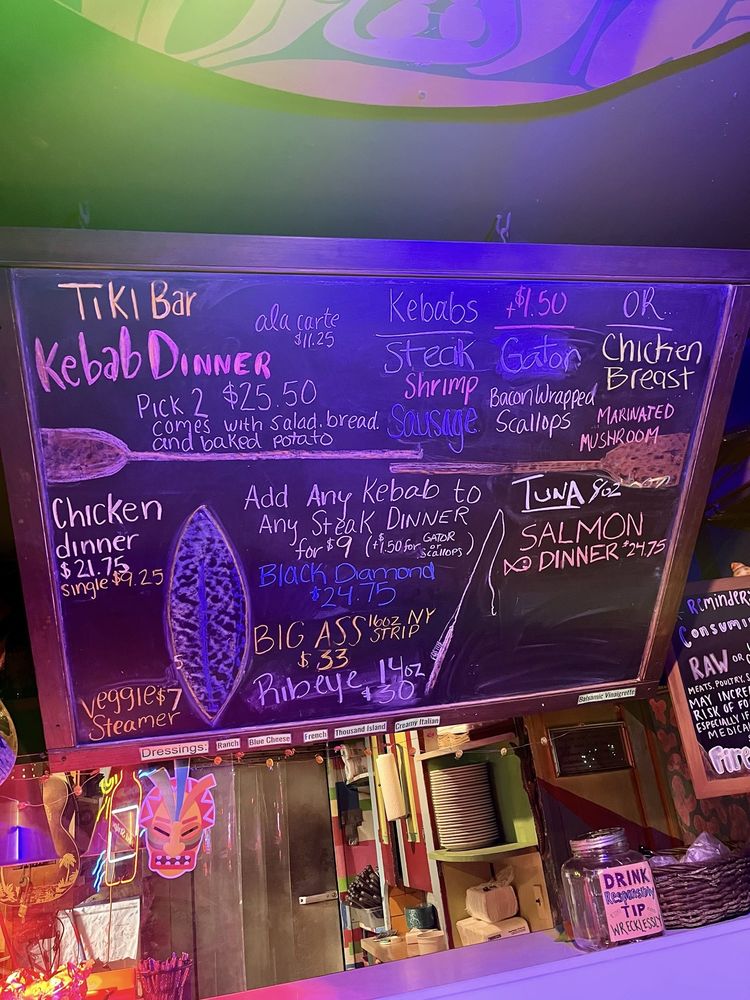 TIKI Bar
Kebab DINNER
ala carte
$11.25
Pick 2 $25.50
comes with salad. bread.
and baked potato
Kebabs
Steak
Shrimp
Sausage
+$1.50
Gator
Bacon Wrapped
Scallops
OR
Chicken
Breast
MARINATED
MUSHROOM
Chicken
dinner
$21.75
single $9.25
veggie $7
Steamer
Add Any Kebab to
Any Steak DINNER
for $9 (+1.50 for GATOR
or
Scallops)
Black Diamond
$24.75
BIG ASS 16oz NY
STRIP
$33
Ribeye 14oz
$30
TUNA 9oz
SALMON
DINNER $24.75
Dressings:
Ranch
Blue Cheese
French
Thousand Island
Creamy Italian
Balsamic Vinaigrette
Reminder:
RAW
MEATS, POULTRY,
MAY
RISK OF
DRINK
RESPONSIBLY
TIP
WRECKLESSLY